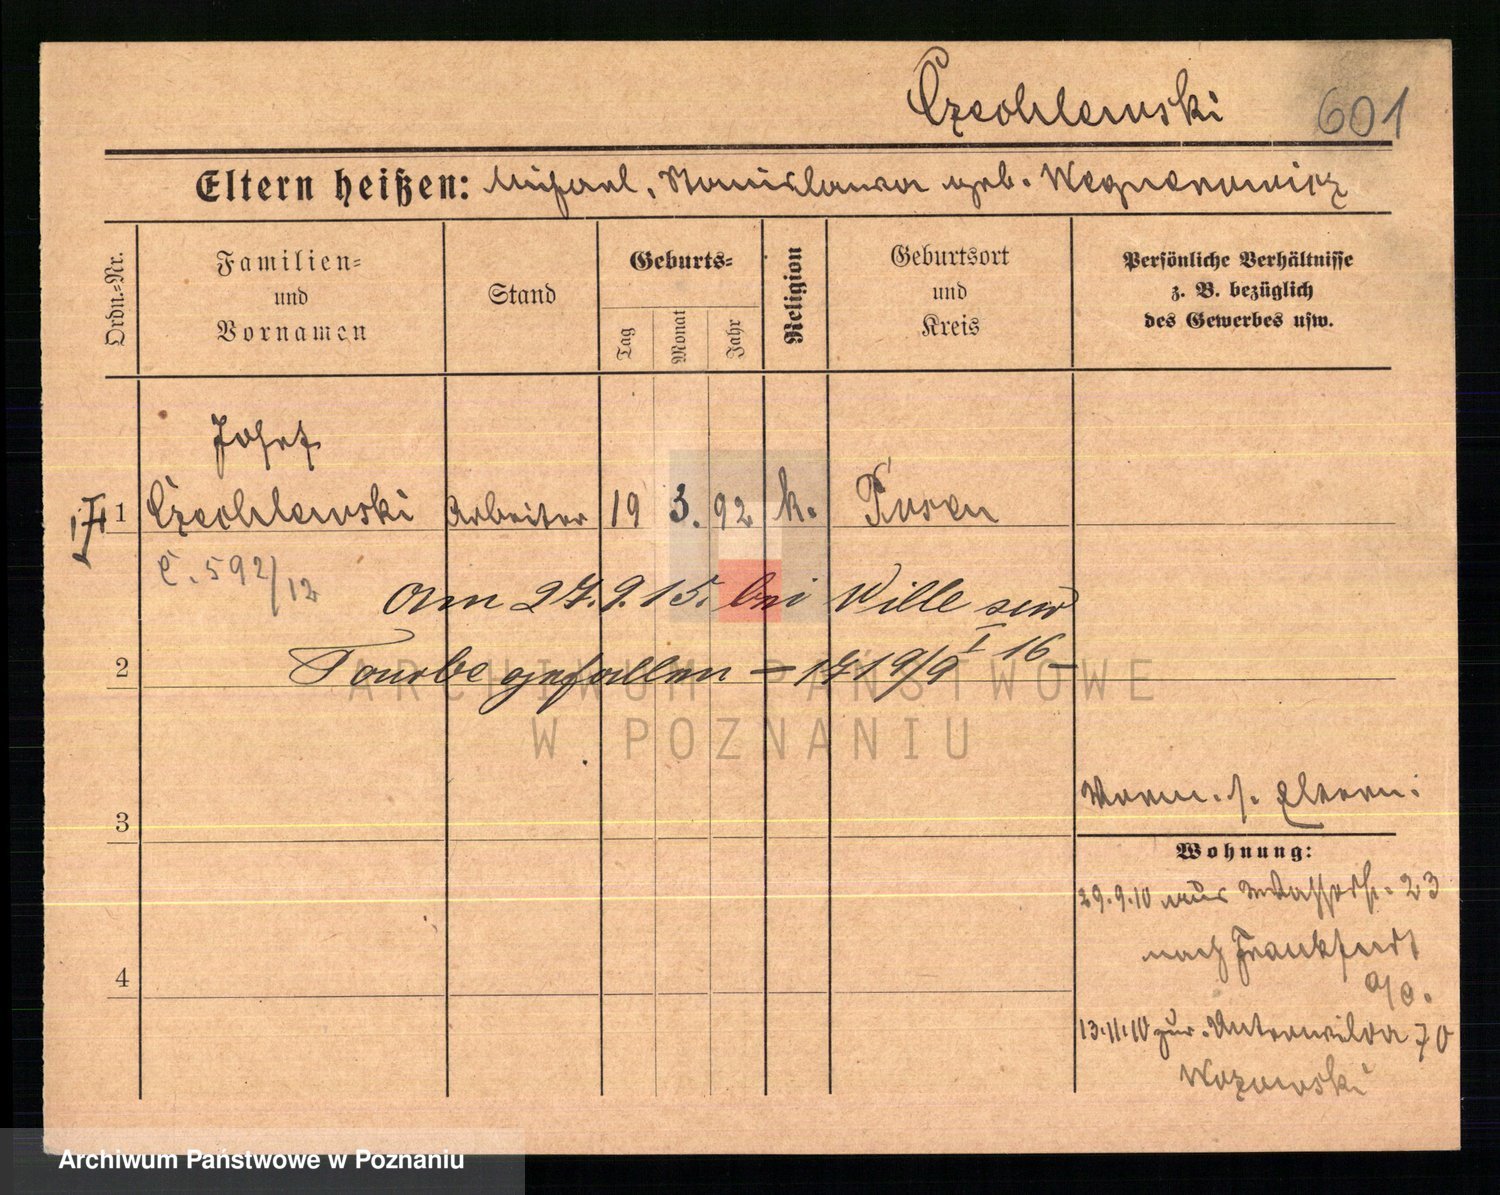 Czechlewski 601
Eltern heißen: Michael, Stanislawa geb. Wegnerowicz
Ordn.-Nr.
Familien-
und
Vornamen
Stand
Geburts-
Tag
Monat
Jahr
Religion
Geburtsort
und
Kreis
Persönliche Verhältnisse
z. B. bezüglich
des Gewerbes usw.
Josef
1 Czechlewski Arbeiter 19 3. 92 k. Posen
C. 592/12
Am 27.9.15. bei Ville sur
2 Tourbe gefallen – 1719/9 I 16 –
ARCHIWUM PAŃSTWOWE
W POZNANIU
3
Verm. s. Eltern.
Wohnung:
29.9.10 aus 23
nach Frankfurt
a/O.
4
13.11.10 zur. Unterwilda 70
Archiwum Państwowe w Poznaniu